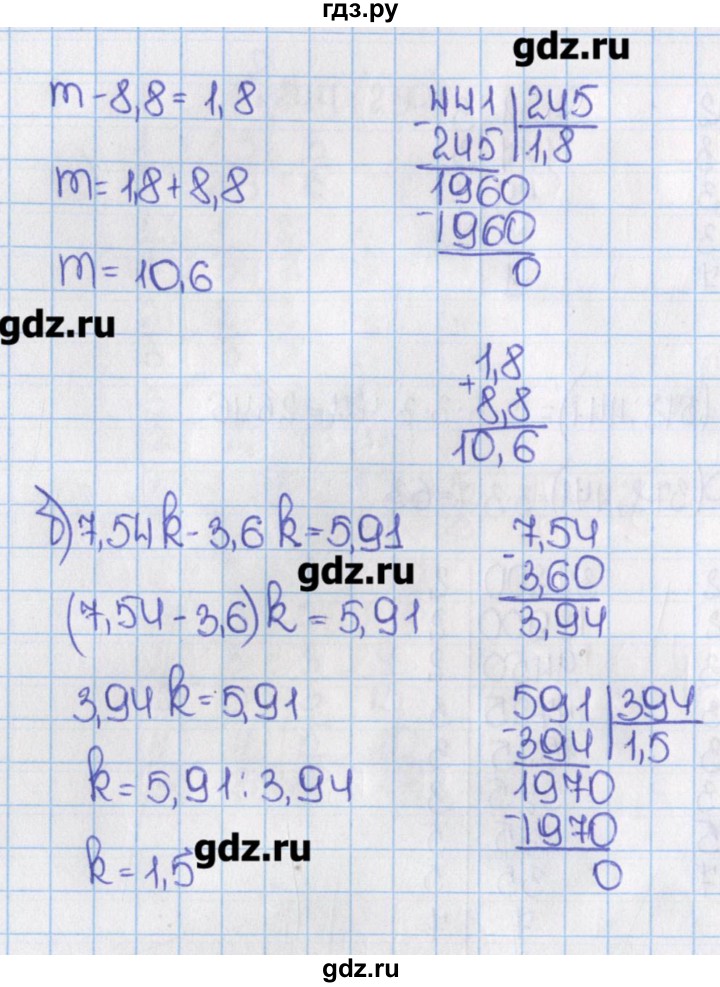 гдз.ру
gdz.ru
m - 8,8 = 1,8
m = 1,8 + 8,8
m = 10,6
441 | 245
- 245 | 1,8
1960
- 1960
0
gdz.ru
1,8
+ 8,8
10,6
б) 7,54k - 3,6k = 5,91
(7,54 - 3,6)k = 5,91
3,94k = 5,91
k = 5,91 : 3,94
k = 1,5
gdz.ru
7,54
- 3,60
3,94
591 | 394
- 394 | 1,5
1970
- 1970
0
gdz.ru
gdz.ru